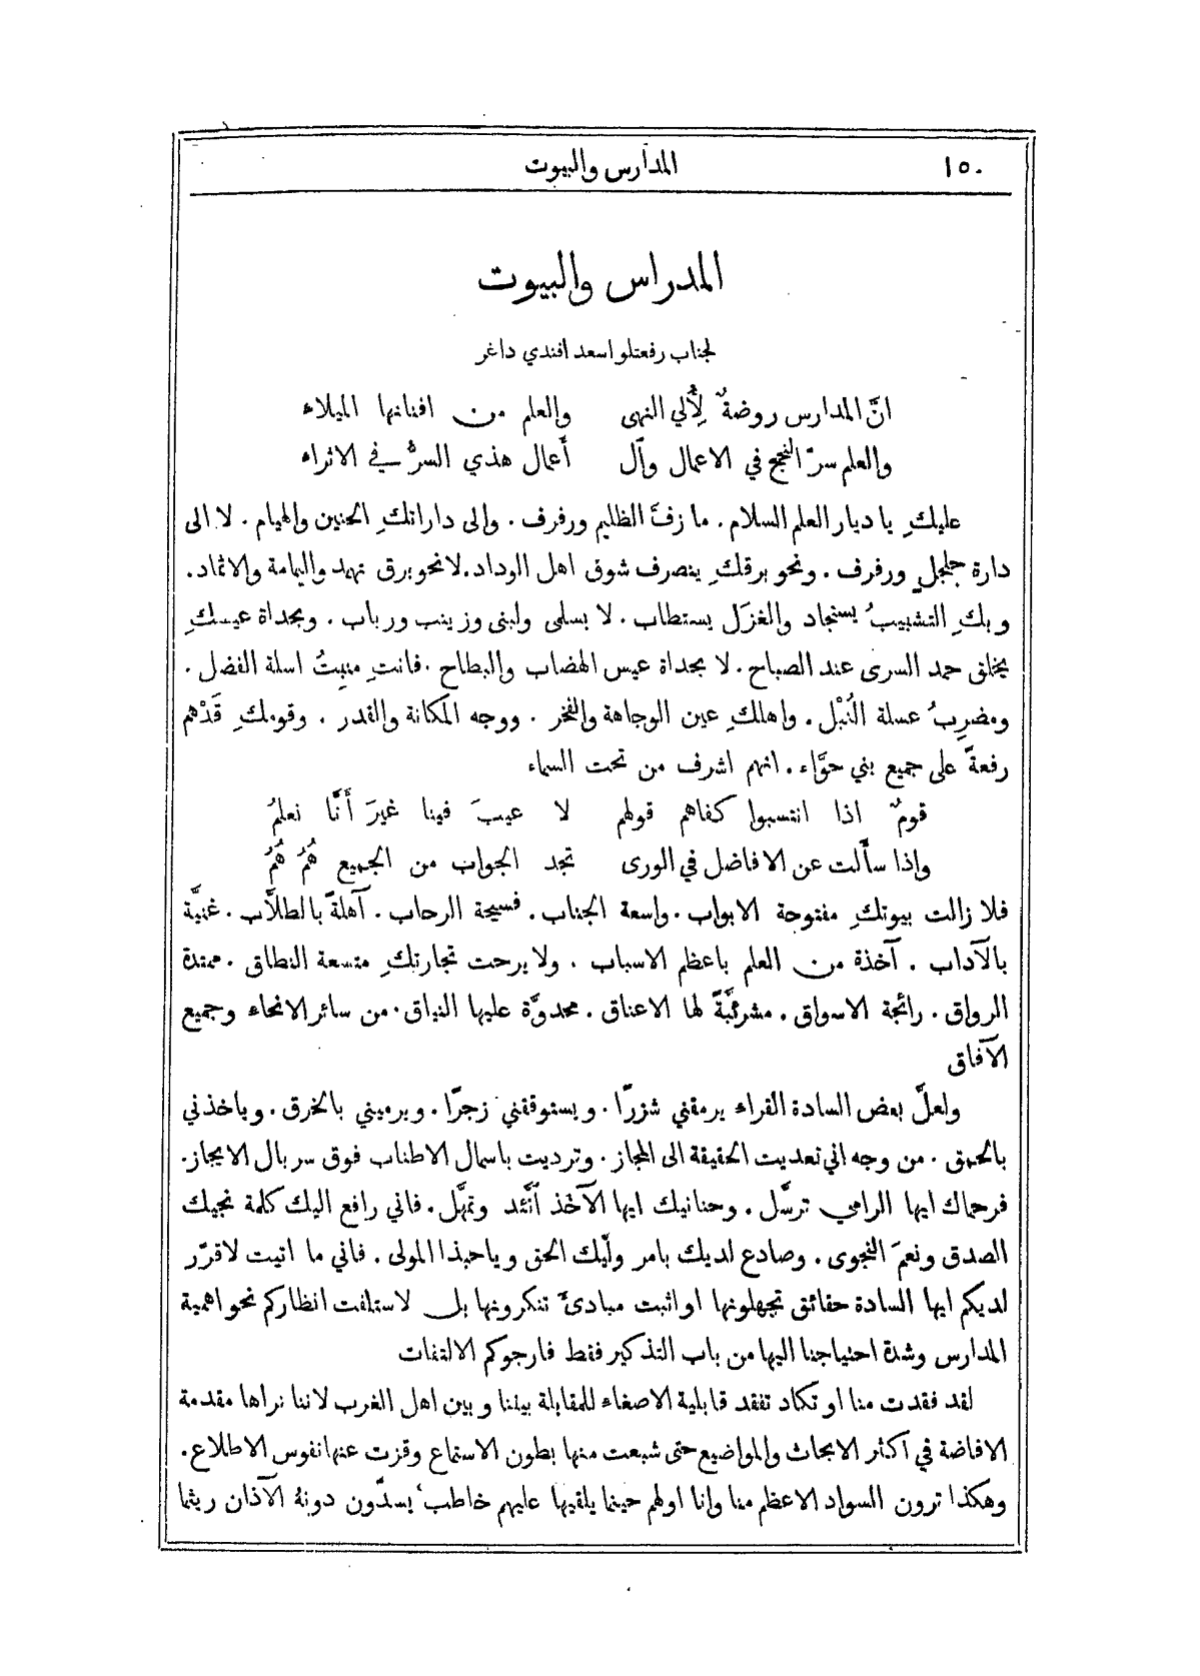 ١٥٠ المدارس والبيوت
المدراس والبيوت
لجناب رفعتلو اسعد افندي داغر
انَّ المدارس روضةٌ لِأُلي النهى والعلم من افنانها الميلاء
والعلم سرّ النجح في الاعمال وآل أعمال هذي السرُّ في الاثراء
عليكِ يا ديار العلم السلام. ما زفَّ الظليم ورفرف. والى داراتكِ الحنين والهيام. لا الى
دارة جلجلٍ ورفرف. ونحو برقكِ ينصرف شوق اهل الوداد. لا نحو برق ثهمد واليمامة والاثماد.
وبكِ التشبيبُ يستجاد والغزَل يستطاب. لا بسلمى ولبنى وزينب ورباب. وبحداة عيسكِ
يخلق حمد السرى عند الصباح. لا بحداة عيس الهضاب والبطاح. فانتِ منبِتُ اسلة الفضل.
ومضرِبُ عسلة النُبْل. واهلكِ عين الوجاهة والفخر. ووجه المكانة والقدر. وقومكِ قَدْهم
رفعةً على جميع بني حوَّاء. انهم اشرف من تحت السماء
قومٌ اذا انتسبوا كفاهم قولهم لا عيبَ فينا غيرَ أَنَّا نعلمُ
واذا سأَلت عن الافاضل في الورى تجد الجواب من الجميع هُمُ هُمُ
فلا زالت بيوتكِ مفتوحة الابواب. واسعة الجناب. فسيحة الرحاب. آهلةً بالطلاَّب. غنيَّة
بالآداب. آخذة من العلم باعظم الاسباب. ولا برحت تجارتكِ متسعة النطاق. ممتدة
الرواق. رائجة الاسواق. مشرئبَّةً لها الاعناق. محدوَّة عليها النياق. من سائر الانحاء وجميع
الآفاق
ولعلَّ بعض السادة القراء يرمقني شزرًا. ويستوقفني زجرًا. ويرميني بالخرق. وياخذني
بالحمق. من وجه اني تعديت الحقيقة الى المجاز. وترديت باسمال الاطناب فوق سربال الايجاز.
فرحماك ايها الرامي ترسَّل. وحنانيك ايها الآخذ اتَّئد وتمهَّل. فاني رافع اليك كلمة نجيك
الصدق ونعمَ النجوى. وصادع لديك بامر وليّك الحق ويا حبذا المولى. فاني ما اتيت لاقرّر
لديكم ايها السادة حقائق تجهلونها او اثبت مبادئَ تنكرونها بل لاستلفت انظاركم نحو اهمية
المدارس وشدة احتياجنا اليها من باب التذكير فقط فارجوكم الالتفات
لقد فقدت منا او تكاد تفقد قابلية الاصغاء للمقابلة بيننا وبين اهل الغرب لاننا نراها مقدمة
الافاضة في اكثر الابحاث والمواضيع حتى شبعت منها بطون الاستماع وقزت عنها نفوس الاطلاع.
وهكذا ترون السواد الاعظم منا وانا اولهم حينما يلقيها عليهم خاطب يسدّون دونهُ الآذان ريثما